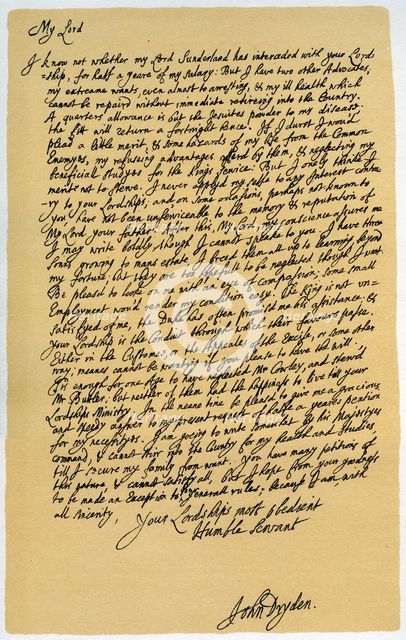 My Lord
I know not whether my Lord Sunderland has interceded with your Lord-
ship, for half a yeare of my salary: But I have two other Advocates,
my extreame wants, even almost to arresting, & my ill health which
cannot be repaird without immediate retireing into the Country.
A quarters allowance is but the Jesuites powder to my disease;
the fitt will return a fortnight hence. If I durst I woud
plead a little merit, & some hazards of my life from the Common
Enemyes, my refuseing advantages offerd by them, & neglecting my
beneficiall studyes for the King's service: But I onely thinke I
merit not to sterve. I never applyd my selfe to any Interest contra-
ry to your Lordship's; and on some occasions, perhaps not known to
you, have not been unserviceable to the memory & reputation of
My Lord your father. After this, My Lord, my conscience assures me
I may write boldly, though I cannot speake to you. I have three
Sonns growing to mans estate, I breed them all up to learning, beyond
my fortune; but they are too hopefull to be neglected though I want.
Be pleasd to looke on me with an eye of compassion; some small
Employment woud render my condition easy. The King is not un-
satisfyed of me, the Duke has often promisd me his assistance; &
Your Lordship is the Conduit through which their favours passe.
Either in the Customes, or the Appeales of the Excise, or some other
way; meanes cannot be wanting if you please to have the will.
Tis enough for one Age to have neglected Mr Cowley, and sterv'd
Mr Butler; but neither of them had the happiness to live till your
Lordships Ministry. In the meane time be pleasd to give me a gracious
and speedy answer to my present request of halfe a yeares pention
for my necessityes. I am going to write somewhat by his Majestyes
command, & cannot stirr into the Country for my health and studies,
till I secure my family from want. You have many petitions of
this nature, & cannot satisfy all, but I hope from your goodness
to be made an Exception to your generall rules; because I am, with
all sincerity,
Your Lordships most obedient
Humble Servant
John Dryden.